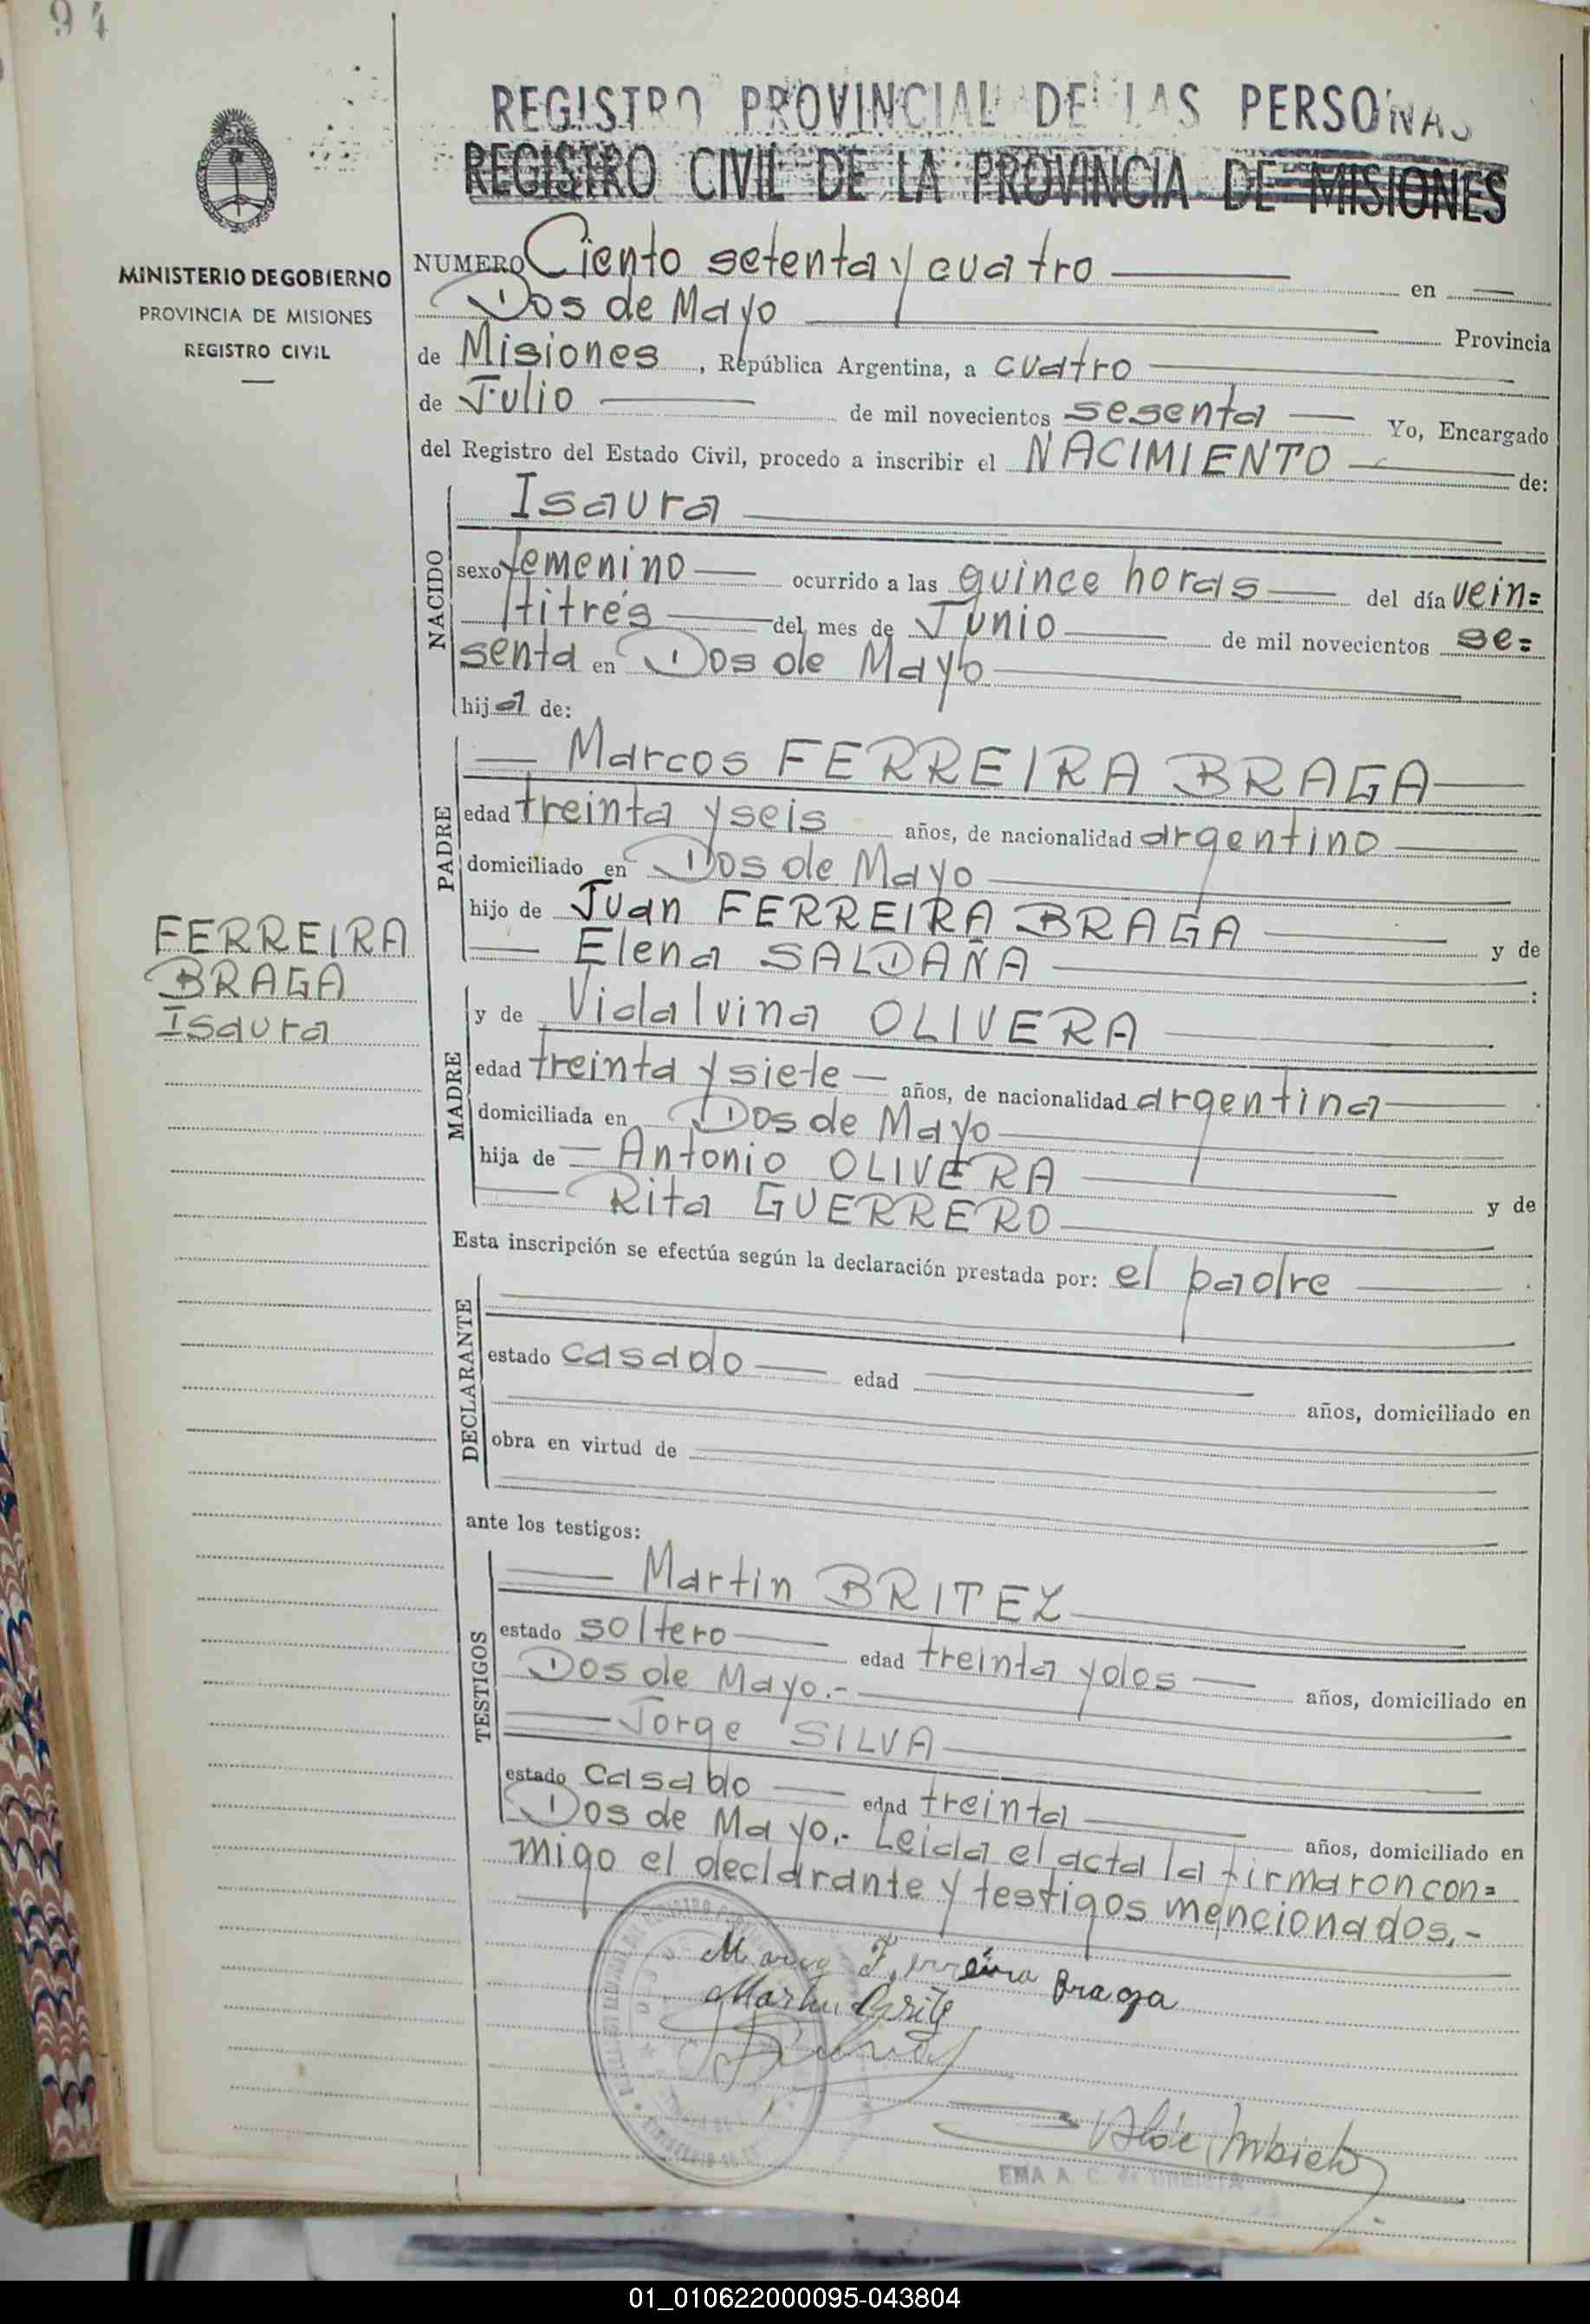 94
REGISTRO PROVINCIAL DE LAS PERSONAS
REGISTRO CIVIL DE LA PROVINCIA DE MISIONES
MINISTERIO DE GOBIERNO
PROVINCIA DE MISIONES
REGISTRO CIVIL
NUMERO Ciento setenta y cuatro en
Dos de Mayo Provincia
de Misiones, República Argentina, a cuatro
de Julio de mil novecientos sesenta Yo, Encargado
del Registro del Estado Civil, procedo a inscribir el NACIMIENTO de:
NACIDO
Isaura
sexo femenino ocurrido a las quince horas del día vein=
titrés del mes de Junio de mil novecientos se=
senta en Dos de Mayo
hija de:
PADRE
Marcos FERREIRA BRAGA
edad treinta y seis años, de nacionalidad argentino
domiciliado en Dos de Mayo
hijo de Juan FERREIRA BRAGA y de
Elena SALDAÑA
FERREIRA
BRAGA
Isaura
MADRE
y de Vidalvina OLIVERA
edad treinta y siete años, de nacionalidad argentina
domiciliada en Dos de Mayo
hija de Antonio OLIVERA y de
Rita GUERRERO
Esta inscripción se efectúa según la declaración prestada por: el padre
DECLARANTE
estado casado edad años, domiciliado en
obra en virtud de
ante los testigos:
TESTIGOS
Martin BRITEZ
estado soltero edad treinta y dos años, domiciliado en
Dos de Mayo.-
Jorge SILVA
estado casado edad treinta años, domiciliado en
Dos de Mayo.- Leida el acta la firmaron con=
migo el declarante y testigos mencionados.-
Marcos Ferreira Braga
Martin Britez
EMA A. C. de URBIETA
01_010622000095-043804